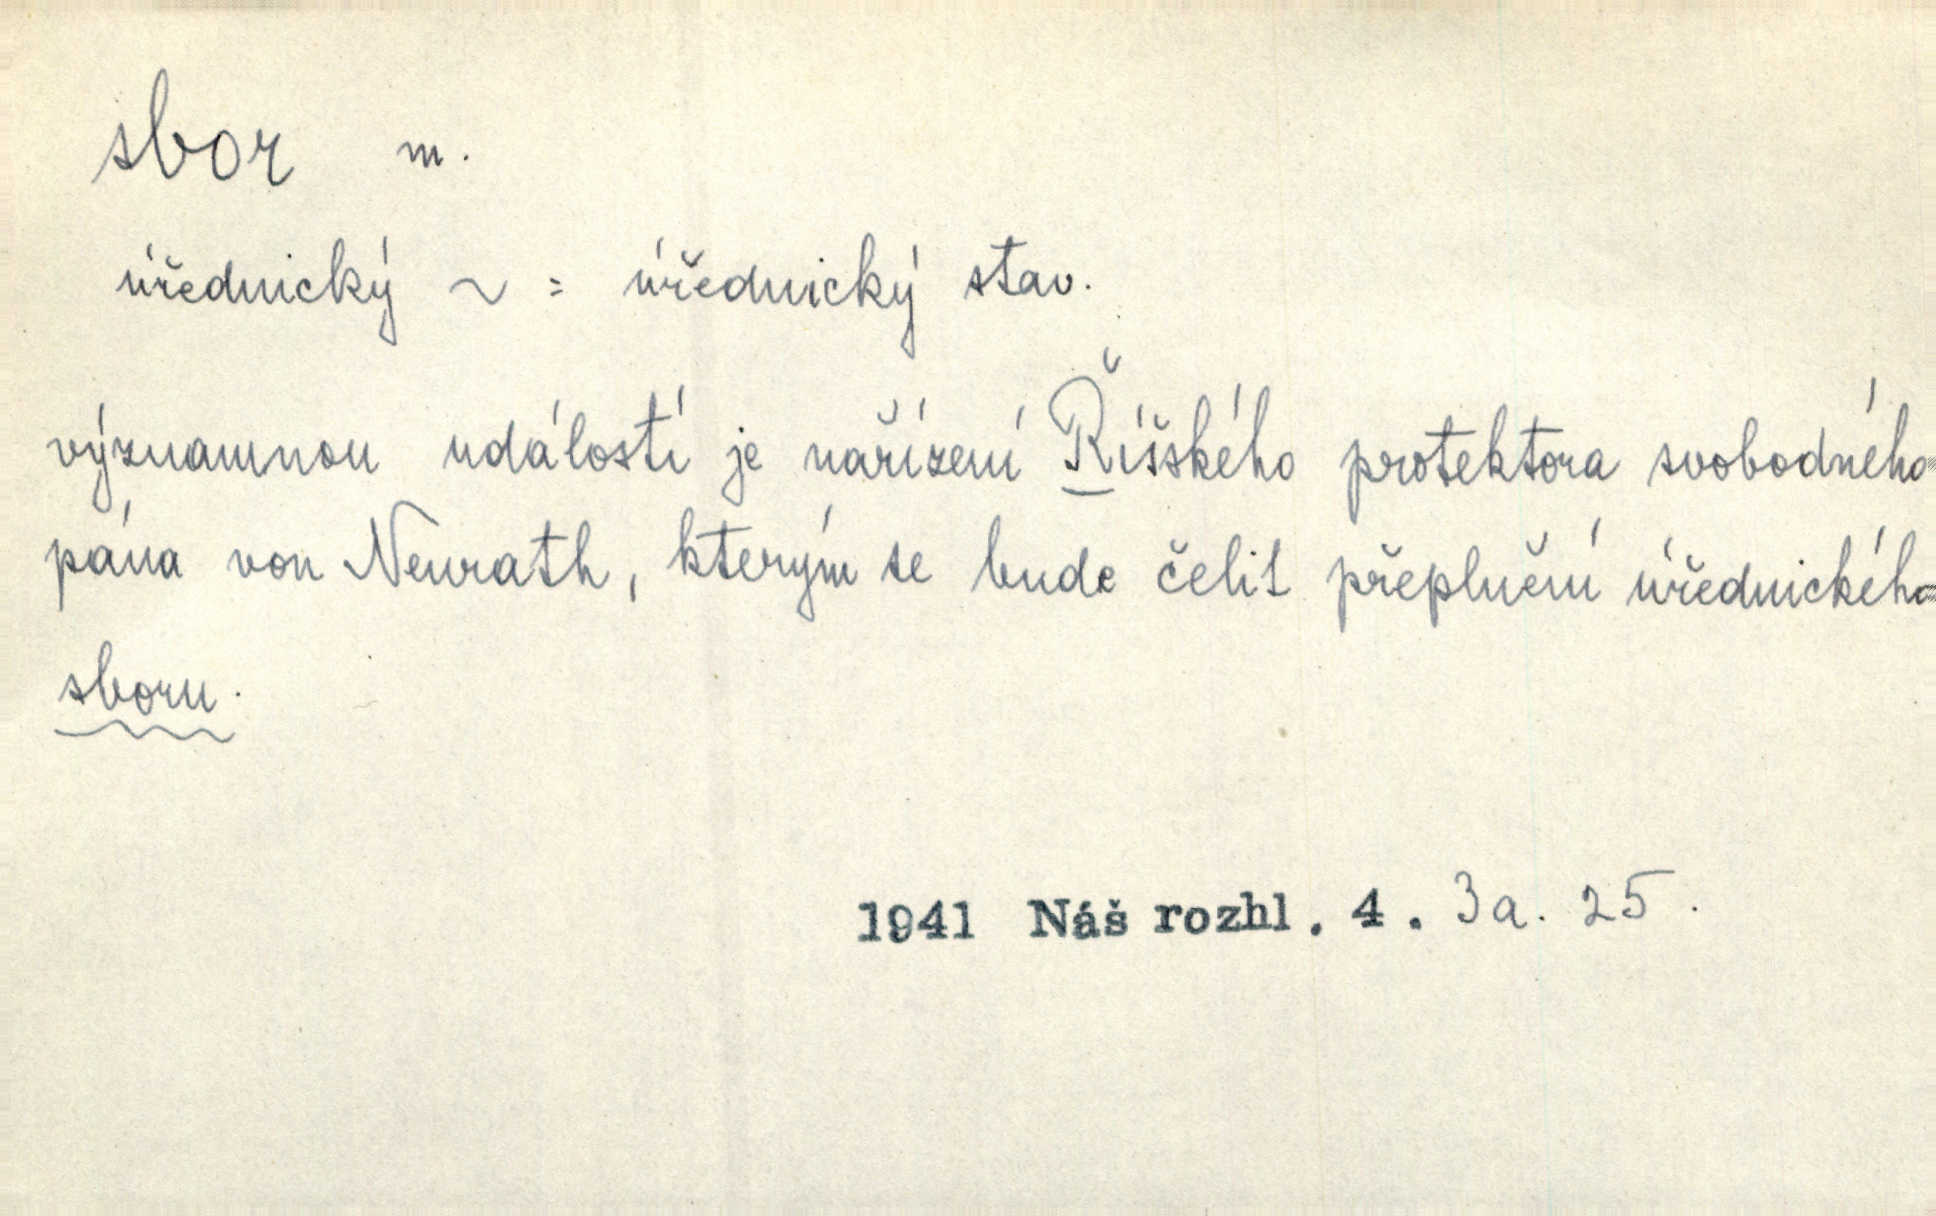 sbor m.
úřednický ~ = úřednický stav.
významnou událostí je nařízení Říšského protektora svobodného
pána von Neurath, kterým se bude čelit přeplnění úřednického
sboru.
1941 Náš rozhl. 4. 3a. 25.